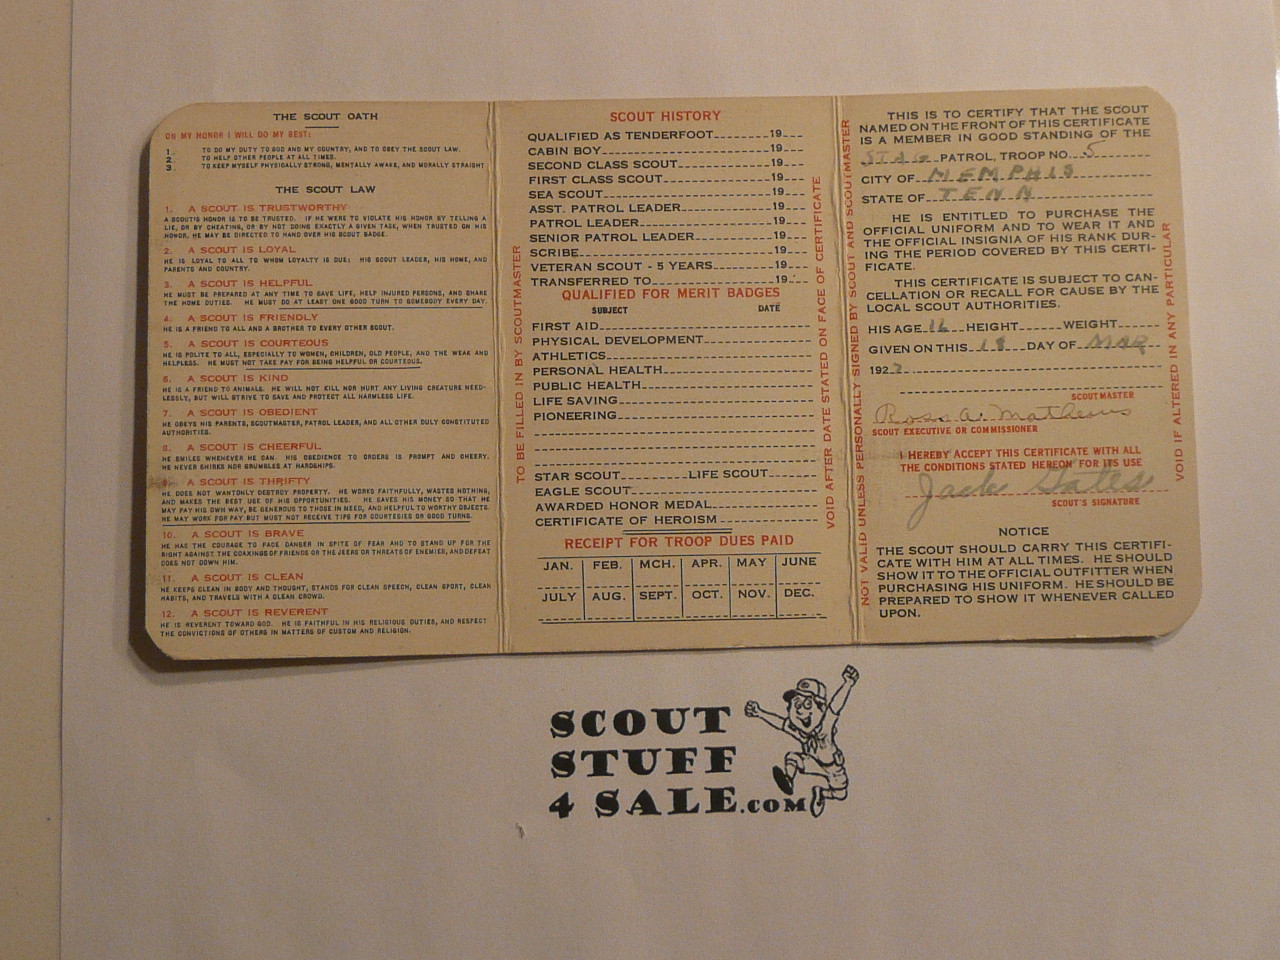 THE SCOUT OATH
ON MY HONOR I WILL DO MY BEST:
1. TO DO MY DUTY TO GOD AND MY COUNTRY, AND TO OBEY THE SCOUT LAW.
2. TO HELP OTHER PEOPLE AT ALL TIMES.
3. TO KEEP MYSELF PHYSICALLY STRONG, MENTALLY AWAKE, AND MORALLY STRAIGHT
THE SCOUT LAW
1. A SCOUT IS TRUSTWORTHY
A SCOUT'S HONOR IS TO BE TRUSTED. IF HE WERE TO VIOLATE HIS HONOR BY TELLING A
LIE, OR BY CHEATING, OR BY NOT DOING EXACTLY A GIVEN TASK, WHEN TRUSTED ON HIS
HONOR, HE MAY BE DIRECTED TO HAND OVER HIS SCOUT BADGE.
2. A SCOUT IS LOYAL
HE IS LOYAL TO ALL TO WHOM LOYALTY IS DUE: HIS SCOUT LEADER, HIS HOME, AND
PARENTS AND COUNTRY.
3. A SCOUT IS HELPFUL
HE MUST BE PREPARED AT ANY TIME TO SAVE LIFE, HELP INJURED PERSONS, AND SHARE
THE HOME DUTIES. HE MUST DO AT LEAST ONE GOOD TURN TO SOMEBODY EVERY DAY.
4. A SCOUT IS FRIENDLY
HE IS A FRIEND TO ALL AND A BROTHER TO EVERY OTHER SCOUT.
5. A SCOUT IS COURTEOUS
HE IS POLITE TO ALL, ESPECIALLY TO WOMEN, CHILDREN, OLD PEOPLE, AND THE WEAK AND
HELPLESS. HE MUST NOT TAKE PAY FOR BEING HELPFUL OR COURTEOUS.
6. A SCOUT IS KIND
HE IS A FRIEND TO ANIMALS. HE WILL NOT KILL NOR HURT ANY LIVING CREATURE NEED-
LESSLY, BUT WILL STRIVE TO SAVE AND PROTECT ALL HARMLESS LIFE.
7. A SCOUT IS OBEDIENT
HE OBEYS HIS PARENTS, SCOUTMASTER, PATROL LEADER, AND ALL OTHER DULY CONSTITUTED
AUTHORITIES.
8. A SCOUT IS CHEERFUL
HE SMILES WHENEVER HE CAN. HIS OBEDIENCE TO ORDERS IS PROMPT AND CHEERY.
HE NEVER SHIRKS NOR GRUMBLES AT HARDSHIPS.
9. A SCOUT IS THRIFTY
HE DOES NOT WANTONLY DESTROY PROPERTY. HE WORKS FAITHFULLY, WASTES NOTHING,
AND MAKES THE BEST USE OF HIS OPPORTUNITIES. HE SAVES HIS MONEY SO THAT HE
MAY PAY HIS OWN WAY, BE GENEROUS TO THOSE IN NEED, AND HELPFUL TO WORTHY OBJECTS.
HE MAY WORK FOR PAY BUT MUST NOT RECEIVE TIPS FOR COURTESIES OR GOOD TURNS.
10. A SCOUT IS BRAVE
HE HAS THE COURAGE TO FACE DANGER IN SPITE OF FEAR AND TO STAND UP FOR THE
RIGHT AGAINST THE COAXINGS OF FRIENDS OR THE JEERS OR THREATS OF ENEMIES, AND DEFEAT
DOES NOT DOWN HIM.
11. A SCOUT IS CLEAN
HE KEEPS CLEAN IN BODY AND THOUGHT, STANDS FOR CLEAN SPEECH, CLEAN SPORT, CLEAN
HABITS, AND TRAVELS WITH A CLEAN CROWD.
12. A SCOUT IS REVERENT
HE IS REVERENT TOWARD GOD. HE IS FAITHFUL IN HIS RELIGIOUS DUTIES, AND RESPECTS
THE CONVICTIONS OF OTHERS IN MATTERS OF CUSTOM AND RELIGION.
TO BE FILLED IN BY SCOUTMASTER
SCOUT HISTORY
QUALIFIED AS TENDERFOOT 19
CABIN BOY 19
SECOND CLASS SCOUT 19
FIRST CLASS SCOUT 19
SEA SCOUT 19
ASST. PATROL LEADER 19
PATROL LEADER 19
SENIOR PATROL LEADER 19
SCRIBE 19
VETERAN SCOUT - 5 YEARS 19
TRANSFERRED TO 19
QUALIFIED FOR MERIT BADGES
SUBJECT DATE
FIRST AID
PHYSICAL DEVELOPMENT
ATHLETICS
PERSONAL HEALTH
PUBLIC HEALTH
LIFE SAVING
PIONEERING
STAR SCOUT LIFE SCOUT
EAGLE SCOUT
AWARDED HONOR MEDAL
CERTIFICATE OF HEROISM
RECEIPT FOR TROOP DUES PAID
JAN. FEB. MCH. APR. MAY JUNE
JULY AUG. SEPT. OCT. NOV. DEC.
VOID AFTER DATE STATED ON FACE OF CERTIFICATE
NOT VALID UNLESS PERSONALLY SIGNED BY SCOUT AND SCOUTMASTER
THIS IS TO CERTIFY THAT THE SCOUT
NAMED ON THE FRONT OF THIS CERTIFICATE
IS A MEMBER IN GOOD STANDING OF THE
STAG PATROL, TROOP NO. 5
CITY OF MEMPHIS
STATE OF TENN
HE IS ENTITLED TO PURCHASE THE
OFFICIAL UNIFORM AND TO WEAR IT AND
THE OFFICIAL INSIGNIA OF HIS RANK DUR-
ING THE PERIOD COVERED BY THIS CERTI-
FICATE.
THIS CERTIFICATE IS SUBJECT TO CAN-
CELLATION OR RECALL FOR CAUSE BY THE
LOCAL SCOUT AUTHORITIES.
HIS AGE 16 HEIGHT WEIGHT
GIVEN ON THIS 18 DAY OF MAR
192
SCOUTMASTER
Ross A. Mathews
SCOUT EXECUTIVE OR COMMISSIONER
I HEREBY ACCEPT THIS CERTIFICATE WITH ALL
THE CONDITIONS STATED HEREON FOR ITS USE
Jack Gates
SCOUT'S SIGNATURE
NOTICE
THE SCOUT SHOULD CARRY THIS CERTIFI-
CATE WITH HIM AT ALL TIMES. HE SHOULD
SHOW IT TO THE OFFICIAL OUTFITTER WHEN
PURCHASING HIS UNIFORM. HE SHOULD BE
PREPARED TO SHOW IT WHENEVER CALLED
UPON.
VOID IF ALTERED IN ANY PARTICULAR
SCOUT
STUFF
4 SALE.COM